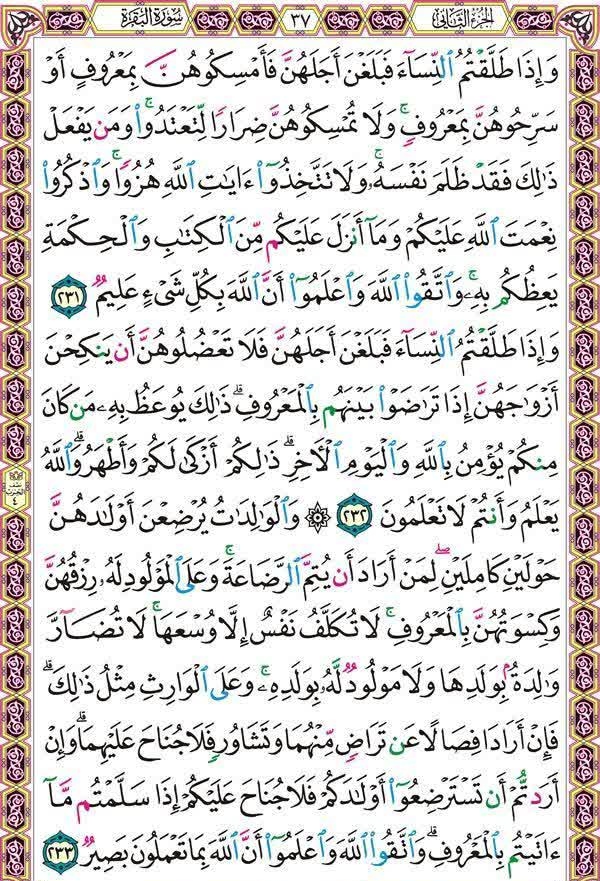 الجزء الثاني ٣٧ سورة البقرة
وَإِذَا طَلَّقۡتُمُ ٱلنِّسَآءَ فَبَلَغۡنَ أَجَلَهُنَّ فَأَمۡسِكُوهُنَّ بِمَعۡرُوفٍ أَوۡ
سَرِّحُوهُنَّ بِمَعۡرُوفٖۚ وَلَا تُمۡسِكُوهُنَّ ضِرَارٗا لِّتَعۡتَدُواْۚ وَمَن يَفۡعَلۡ
ذَٰلِكَ فَقَدۡ ظَلَمَ نَفۡسَهُۥۚ وَلَا تَتَّخِذُوٓاْ ءَايَٰتِ ٱللَّهِ هُزُوٗاۚ وَٱذۡكُرُواْ
نِعۡمَتَ ٱللَّهِ عَلَيۡكُمۡ وَمَآ أَنزَلَ عَلَيۡكُم مِّنَ ٱلۡكِتَٰبِ وَٱلۡحِكۡمَةِ
يَعِظُكُم بِهِۦۚ وَٱتَّقُواْ ٱللَّهَ وَٱعۡلَمُوٓاْ أَنَّ ٱللَّهَ بِكُلِّ شَيۡءٍ عَلِيمٞ ٢٣١
وَإِذَا طَلَّقۡتُمُ ٱلنِّسَآءَ فَبَلَغۡنَ أَجَلَهُنَّ فَلَا تَعۡضُلُوهُنَّ أَن يَنكِحۡنَ
أَزۡوَٰجَهُنَّ إِذَا تَرَٰضَوۡاْ بَيۡنَهُم بِٱلۡمَعۡرُوفِۗ ذَٰلِكَ يُوعَظُ بِهِۦ مَن كَانَ
مِنكُمۡ يُؤۡمِنُ بِٱللَّهِ وَٱلۡيَوۡمِ ٱلۡأٓخِرِۗ ذَٰلِكُمۡ أَزۡكَىٰ لَكُمۡ وَأَطۡهَرُۚ وَٱللَّهُ
يَعۡلَمُ وَأَنتُمۡ لَا تَعۡلَمُونَ ٢٣٢ ۞ وَٱلۡوَٰلِدَٰتُ يُرۡضِعۡنَ أَوۡلَٰدَهُنَّ
حَوۡلَيۡنِ كَامِلَيۡنِۖ لِمَنۡ أَرَادَ أَن يُتِمَّ ٱلرَّضَاعَةَۚ وَعَلَى ٱلۡمَوۡلُودِ لَهُۥ رِزۡقُهُنَّ
وَكِسۡوَتُهُنَّ بِٱلۡمَعۡرُوفِۚ لَا تُكَلَّفُ نَفۡسٌ إِلَّا وُسۡعَهَاۚ لَا تُضَآرَّ
وَٰلِدَةُۢ بِوَلَدِهَا وَلَا مَوۡلُودٞ لَّهُۥ بِوَلَدِهِۦۚ وَعَلَى ٱلۡوَارِثِ مِثۡلُ ذَٰلِكَۗ
فَإِنۡ أَرَادَا فِصَالًا عَن تَرَاضٖ مِّنۡهُمَا وَتَشَاوُرٖ فَلَا جُنَاحَ عَلَيۡهِمَاۗ وَإِنۡ
أَرَدتُّمۡ أَن تَسۡتَرۡضِعُوٓاْ أَوۡلَٰدَكُمۡ فَلَا جُنَاحَ عَلَيۡكُمۡ إِذَا سَلَّمۡتُم مَّآ
ءَاتَيۡتُم بِٱلۡمَعۡرُوفِۗ وَٱتَّقُواْ ٱللَّهَ وَٱعۡلَمُوٓاْ أَنَّ ٱللَّهَ بِمَا تَعۡمَلُونَ بَصِيرٞ ٢٣٣
نصف
الحزب
٤